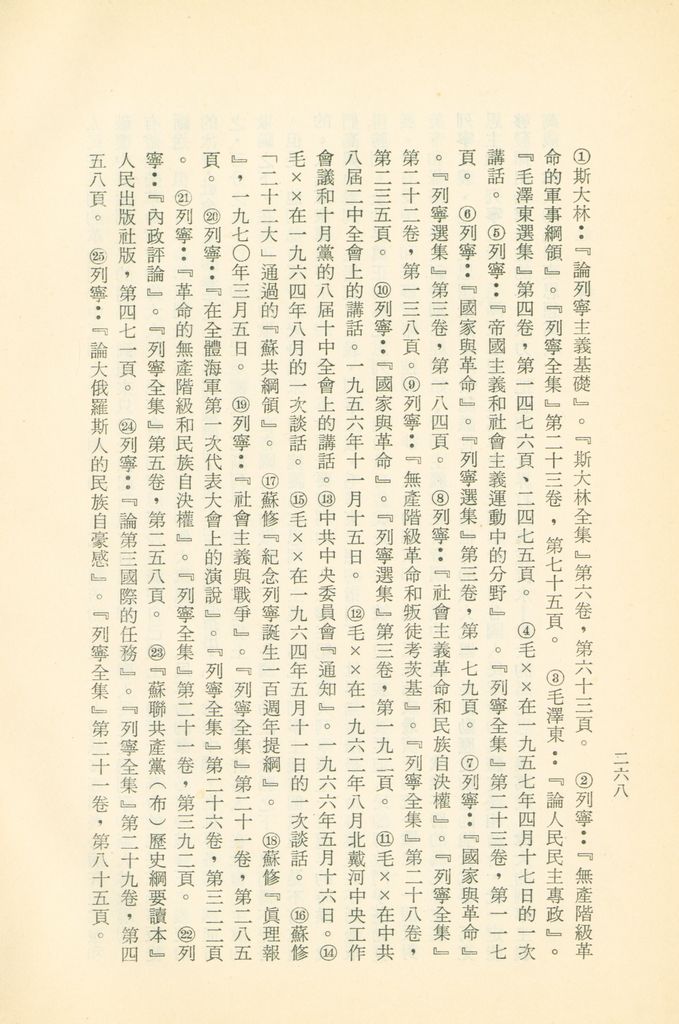 二六八
①斯大林：『論列寧主義基礎』。『斯大林全集』第六卷，第六十三頁。　②列寧：『無產階級革
命的軍事綱領』。『列寧全集』第二十三卷，第七十五頁。　③毛澤東：『論人民民主專政』。
『毛澤東選集』第四卷，第一四七六頁、二四七五頁。　④毛××在一九五七年四月十七日的一次
講話。⑤列寧：『帝國主義和社會主義運動中的分野』。『列寧全集』第二十三卷，第一一七
頁。　⑥列寧：『國家與革命』。『列寧選集』第三卷，第一七九頁。　⑦列寧：『國家與革命』
。『列寧選集』第三卷，第一八四頁。　⑧列寧：『社會主義革命和民族自決權』。『列寧全集』
第二十二卷，第一三八頁。⑨列寧：『無產階級革命和叛徒考茨基』。『列寧全集』第二十八卷，
第二三五頁。　⑩列寧：『國家與革命』。『列寧選集』第三卷，第一九二頁。　⑪毛××在中共
八屆二中全會上的講話。一九五六年十一月十五日。　⑫毛××在一九六二年八月北戴河中央工作
會議和十月黨的八屆十中全會上的講話。⑬中共中央委員會『通知』。一九六六年五月十六日。⑭
毛××在一九六四年八月的一次談話。　⑮毛××在一九六四年五月十一日的一次談話。　⑯蘇修
「二十二大」通過的『蘇共綱領』。　⑰蘇修『紀念列寧誕生一百週年提綱』。　⑱蘇修『真理報
』，一九七〇年三月五日。　⑲列寧：『社會主義與戰爭』。『列寧全集』第二十一卷，第二八五
頁。　⑳列寧：『在全體海軍第一次代表大會上的演說』。『列寧全集』第二十六卷，第三二二頁
。　㉑列寧：『革命的無產階級和民族自決權』。『列寧全集』第二十一卷，第三九二頁。　㉒列
寧：『內政評論』。『列寧全集』第五卷，第二五八頁。　㉓『蘇聯共產黨（布）歷史綱要讀本』
人民出版社版，第四七一頁。　㉔列寧：『論第三國際的任務』。『列寧全集』第二十九卷，第四
五八頁。　㉕列寧：『論大俄羅斯人的民族自豪感』。『列寧全集』第二十一卷，第八十五頁。